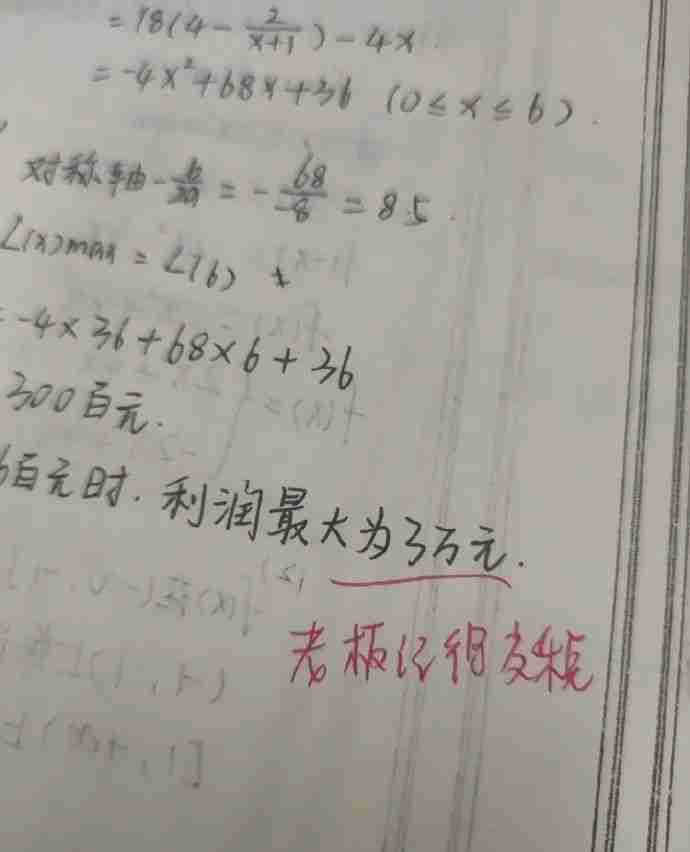 = 18(4 - \frac{2}{x+1}) - 4x
= -4x²+68x+36 (0≤x≤6).
对称轴-\frac{b}{2a} = -\frac{68}{-8} = 8.5.
L(x)max = L(6)
= -4×36+68×6+36
300百元.
6百元时.利润最大为3万元.
老板记得交税